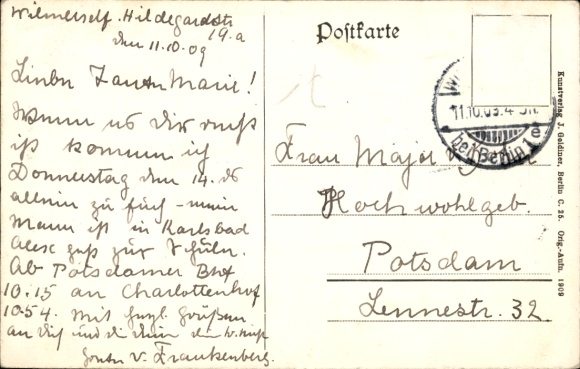 Wilmersdf. Hildegardstr
19.a
den 11.10.09
Lieber Marie!
Wenn es Dir recht
ist komme ich
Donnerstag den 14. ds
allein zu Euch - mein
Mann ist in Karlsbad
Alex geht zur Schule.
Ab Potsdamer Bhf
10.15 an Charlottenhof
10.54. Mit Grüßen
an Dich und die
v. Frankenberg.
Postkarte
11.10.09.4-5N.
Berlin 1 e
Frau Major v.
Hochwohlgeb.
Potsdam
Lennestr. 32.
Kunstverlag J. Goldiner, Berlin C. 25. Orig.-Aufn. 1909